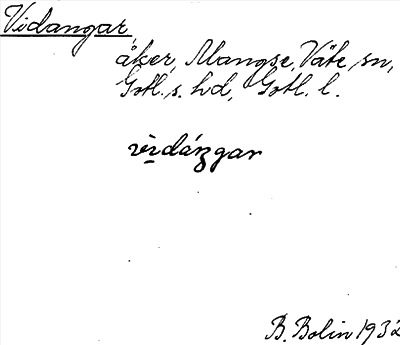 Vidangar,
åker, Mangse, Väte sn,
Gotl. s. hd, Gotl. l.
vidáŋgar
B. Bolin 1932